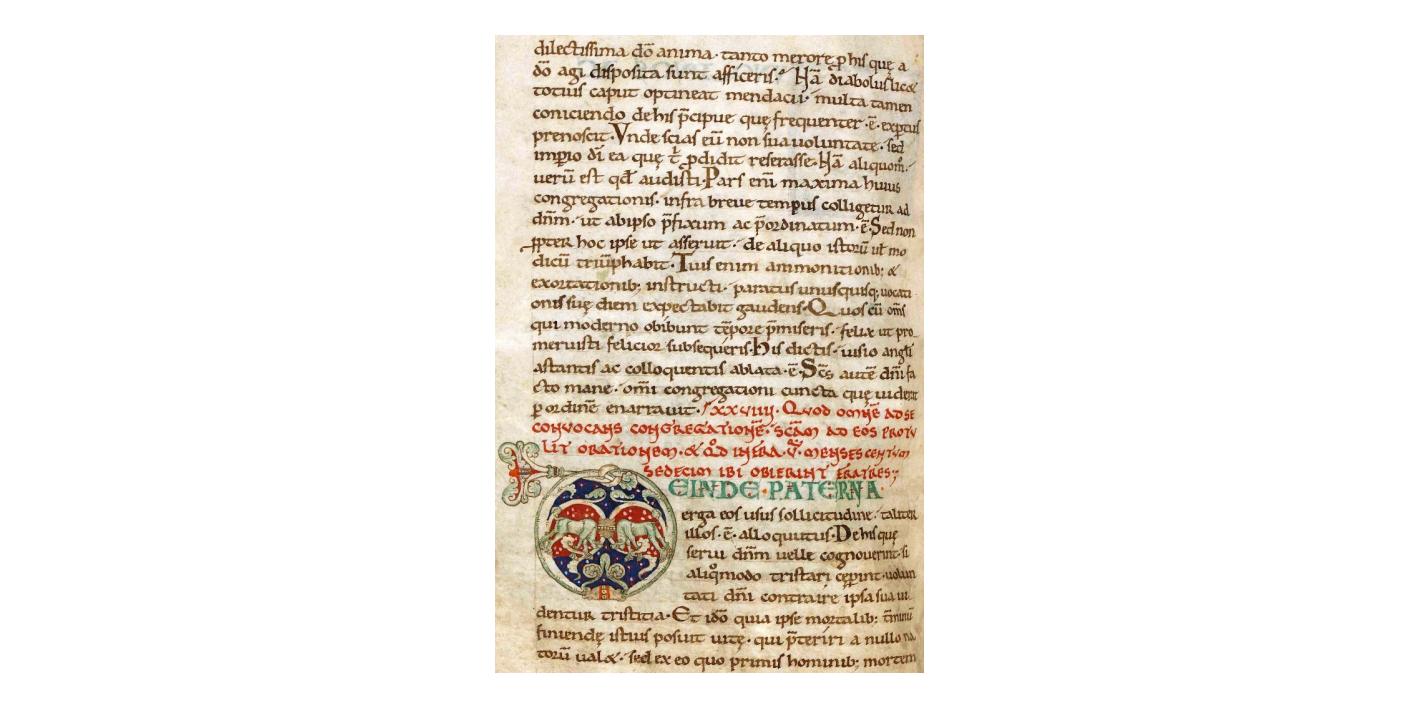 dilectissima dō anima · tanto merore ꝑ his quę a
dō agi disposita sunt afficeris · Nā diabolus licet
totius caput optineat mendacii · multa tamen
coniciendo de his p̄cipue quę frequenter · ē · exptus
prenoscit · Vnde scias eū non sua uoluntate · sed
imperio dī ea quę t̄ ꝓdidit reserasse · Nā aliquom̄
uerū est qd̄ audisti · Pars enī maxima huius
congregationis · infra breue tempus colligetur ad
dn̄m · ut ab ipso p̄fixum ac p̄ordinatum · ē · Sed non
ꝓpter hoc ipse ut asseruit · de aliquo istorū ul̄ mo
dicū triūphabit · Tuis enim ammonitionib; &
exortationib; instructi · paratus unusquisq; uocati
onis suę diem expectabit gaudens · Quos cū om̄s
qui moderno obibunt tēpore p̄miseris · felix ut pro
meruisti felicior subsequeris · His dictis · uisio angli
astantis ac colloquentis ablata · ē · Scs̄ autē dn̄i fa
cto mane · omī congregationi cuncta quę uiderat
ꝑ ordinē enarrauit · XXVIIII · Quod omnē ad se
convocans congregationē · sc̄am ad eos protu
lit orationem · & qd̄ infra · v̄ · menses centum
sedecim ibi obierint fratres;
DEINDE · PATERNA ·
erga eos usus sollicitudine · taliter
illos · ē · alloquutus · De his quę
serui dn̄m uelle cognouerint · si
aliqmodo tristari cęperint · uolun
tati dn̄i contraire ipsa sua ui
dentur tristitia · Et idō quia ipse mortalib; t̄minū
finiendę istius posuit uitę · qui p̄teriri a nullo na
torū ual& · sed ex eo quo primis hominib; mortem